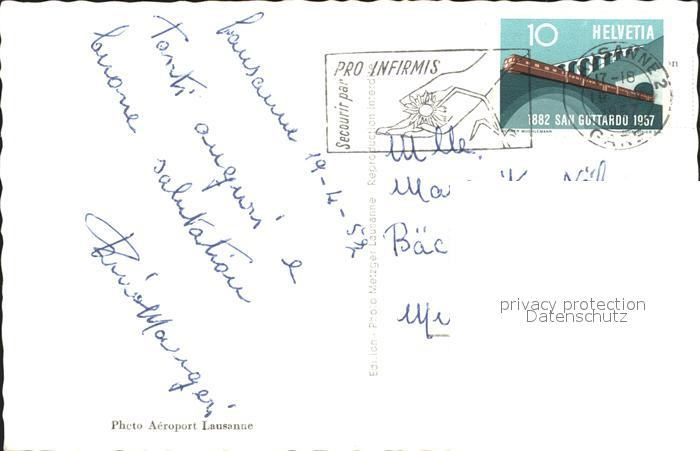 Lausanne 19-4-
Tanti auguri e
buone salutation
Photo Aéroport Lausanne
Edition - Photo Metzger Lausanne Reproduction interdite
PRO INFIRMIS
Secourir par
10 HELVETIA
1882 SAN GOTTARDO 1957
LAUSANNE 2
17-18
Mlle.
Ma
Bäc
privacy protection
Datenschutz